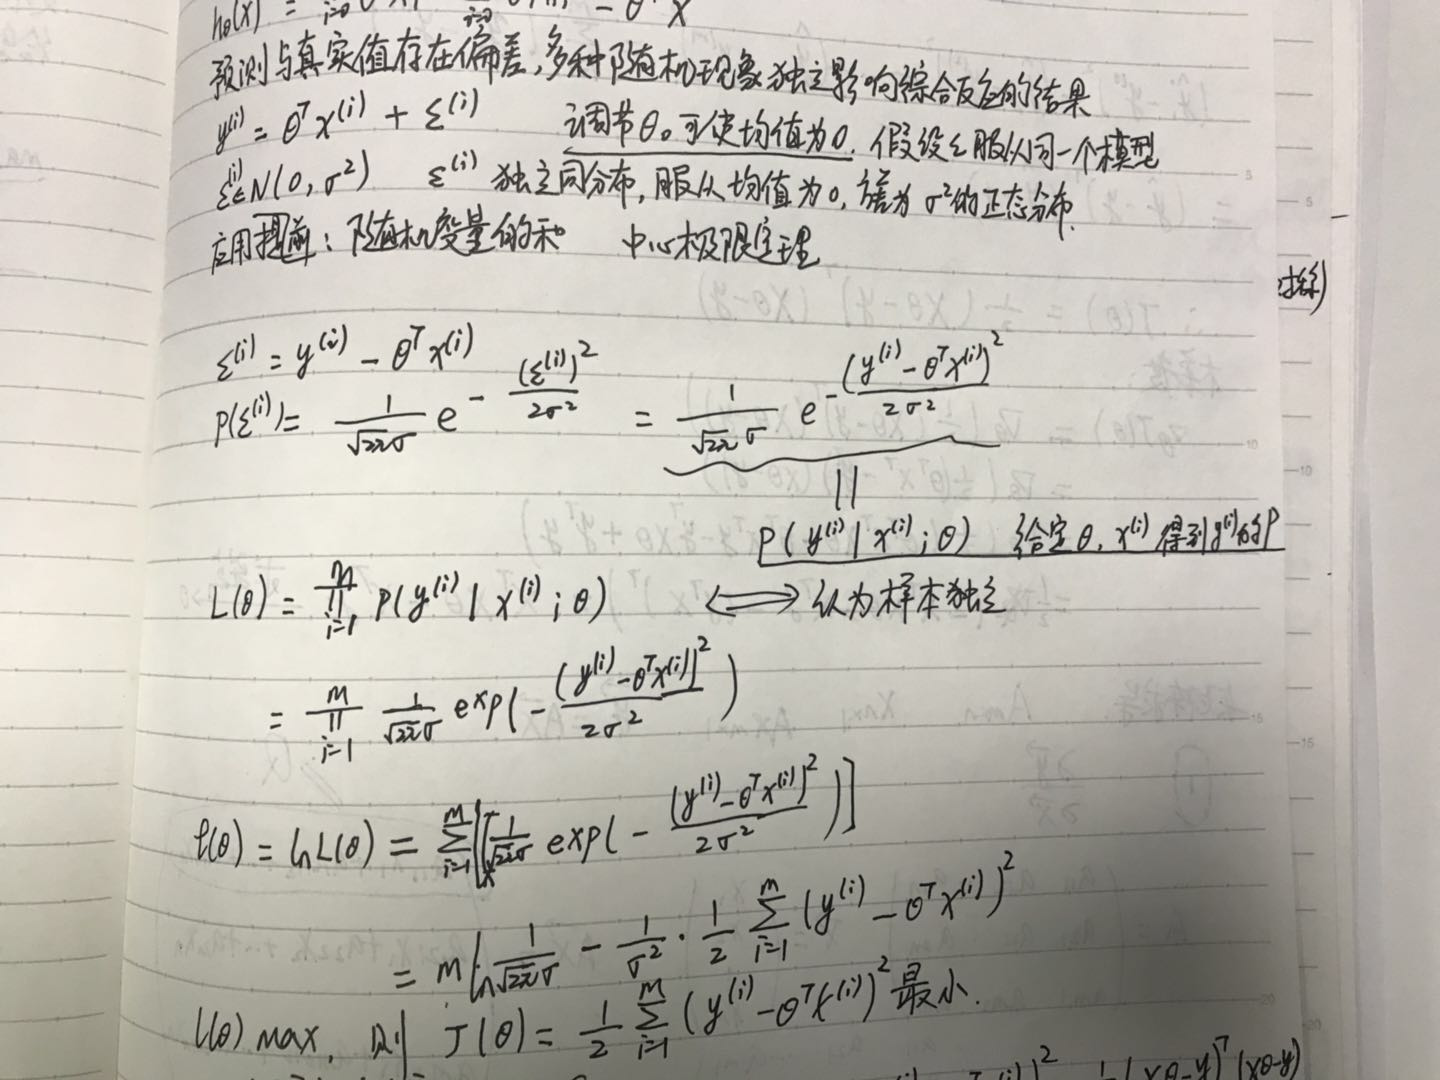 h_θ(x) = Σ_{i=0} = θ^T x
预测与真实值存在偏差,多种随机现象独立影响综合反应的结果
y^(i) = θ^T x^(i) + ε^(i) 调节θ₀可使均值为0. 假设ε服从同一个模型
ε^(i) ∈ N(0, σ²) ε^(i) 独立同分布,服从均值为0,方差为σ²的正态分布.
应用提前: 随机变量的和 中心极限定理
对称)
ε^(i) = y^(i) - θ^T x^(i)
P(ε^(i)) = 1/(√2π σ) e^{- (ε^(i))²/2σ²} = 1/(√2π σ) e^{- (y^(i) - θ^T x^(i))²/2σ²}
||
P(y^(i) | x^(i) ; θ) 给定θ, x^(i) 得到y^(i)的P
L(θ) = ∏_{i=1}^{m} P(y^(i) | x^(i) ; θ) ⟺ 认为样本独立
= ∏_{i=1}^{m} 1/(√2π σ) exp(- (y^(i) - θ^T x^(i))²/2σ²)
ℓ(θ) = ln L(θ) = Σ_{i=1}^{m} [1/(√2π σ) exp(- (y^(i) - θ^T x^(i))²/2σ²)]
= m ln 1/(√2π σ) - 1/σ² · 1/2 Σ_{i=1}^{m} (y^(i) - θ^T x^(i))²
l(θ) max, 则 J(θ) = 1/2 Σ_{i=1}^{m} (y^(i) - θ^T x^(i))² 最小.
(xθ-y)^T (xθ-y)